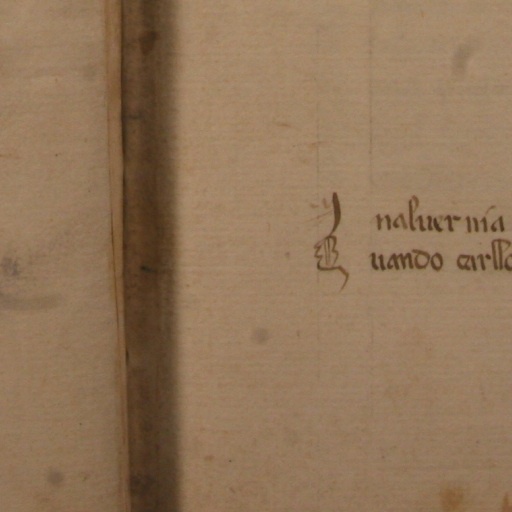 I naluernia
Q uando carllo